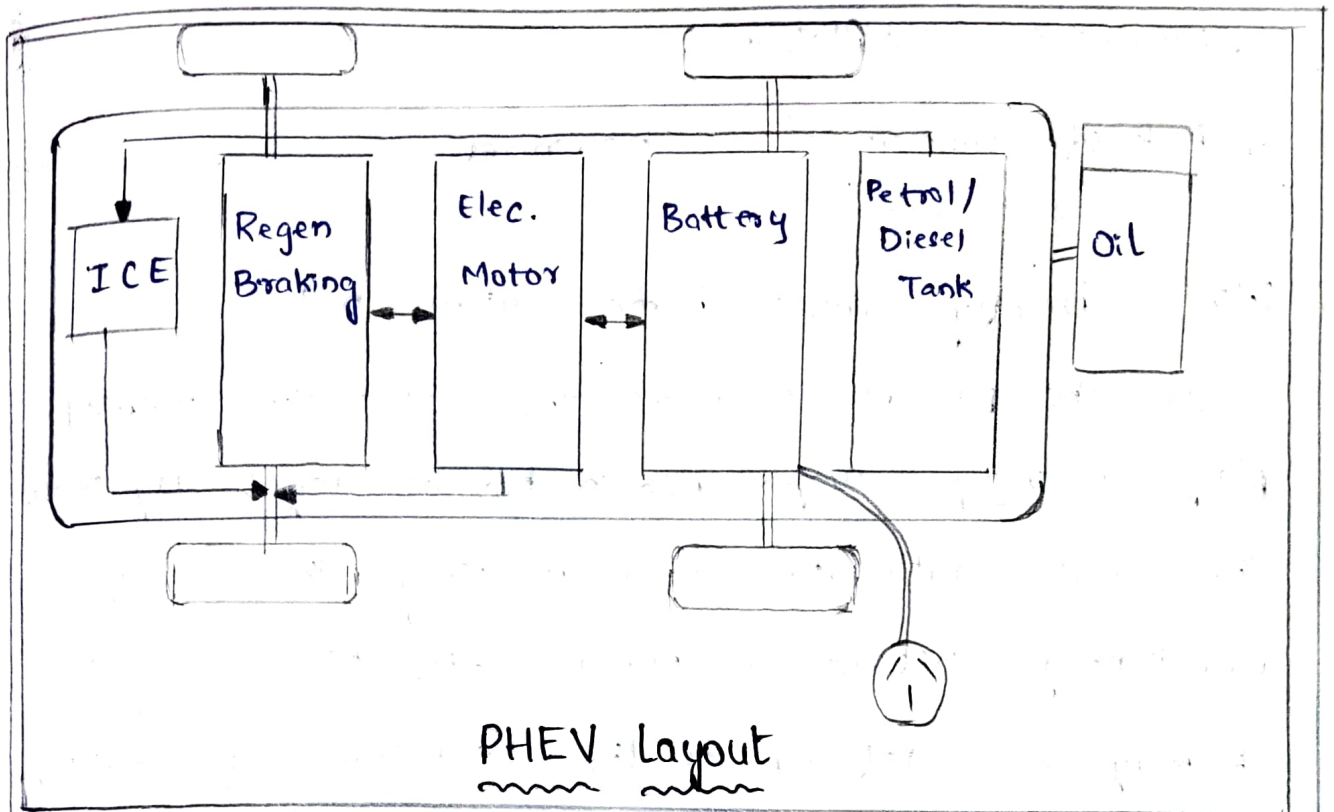 ICE
Regen
Braking
Elec.
Motor
Battery
Petrol/
Diesel
Tank
Oil
PHEV Layout